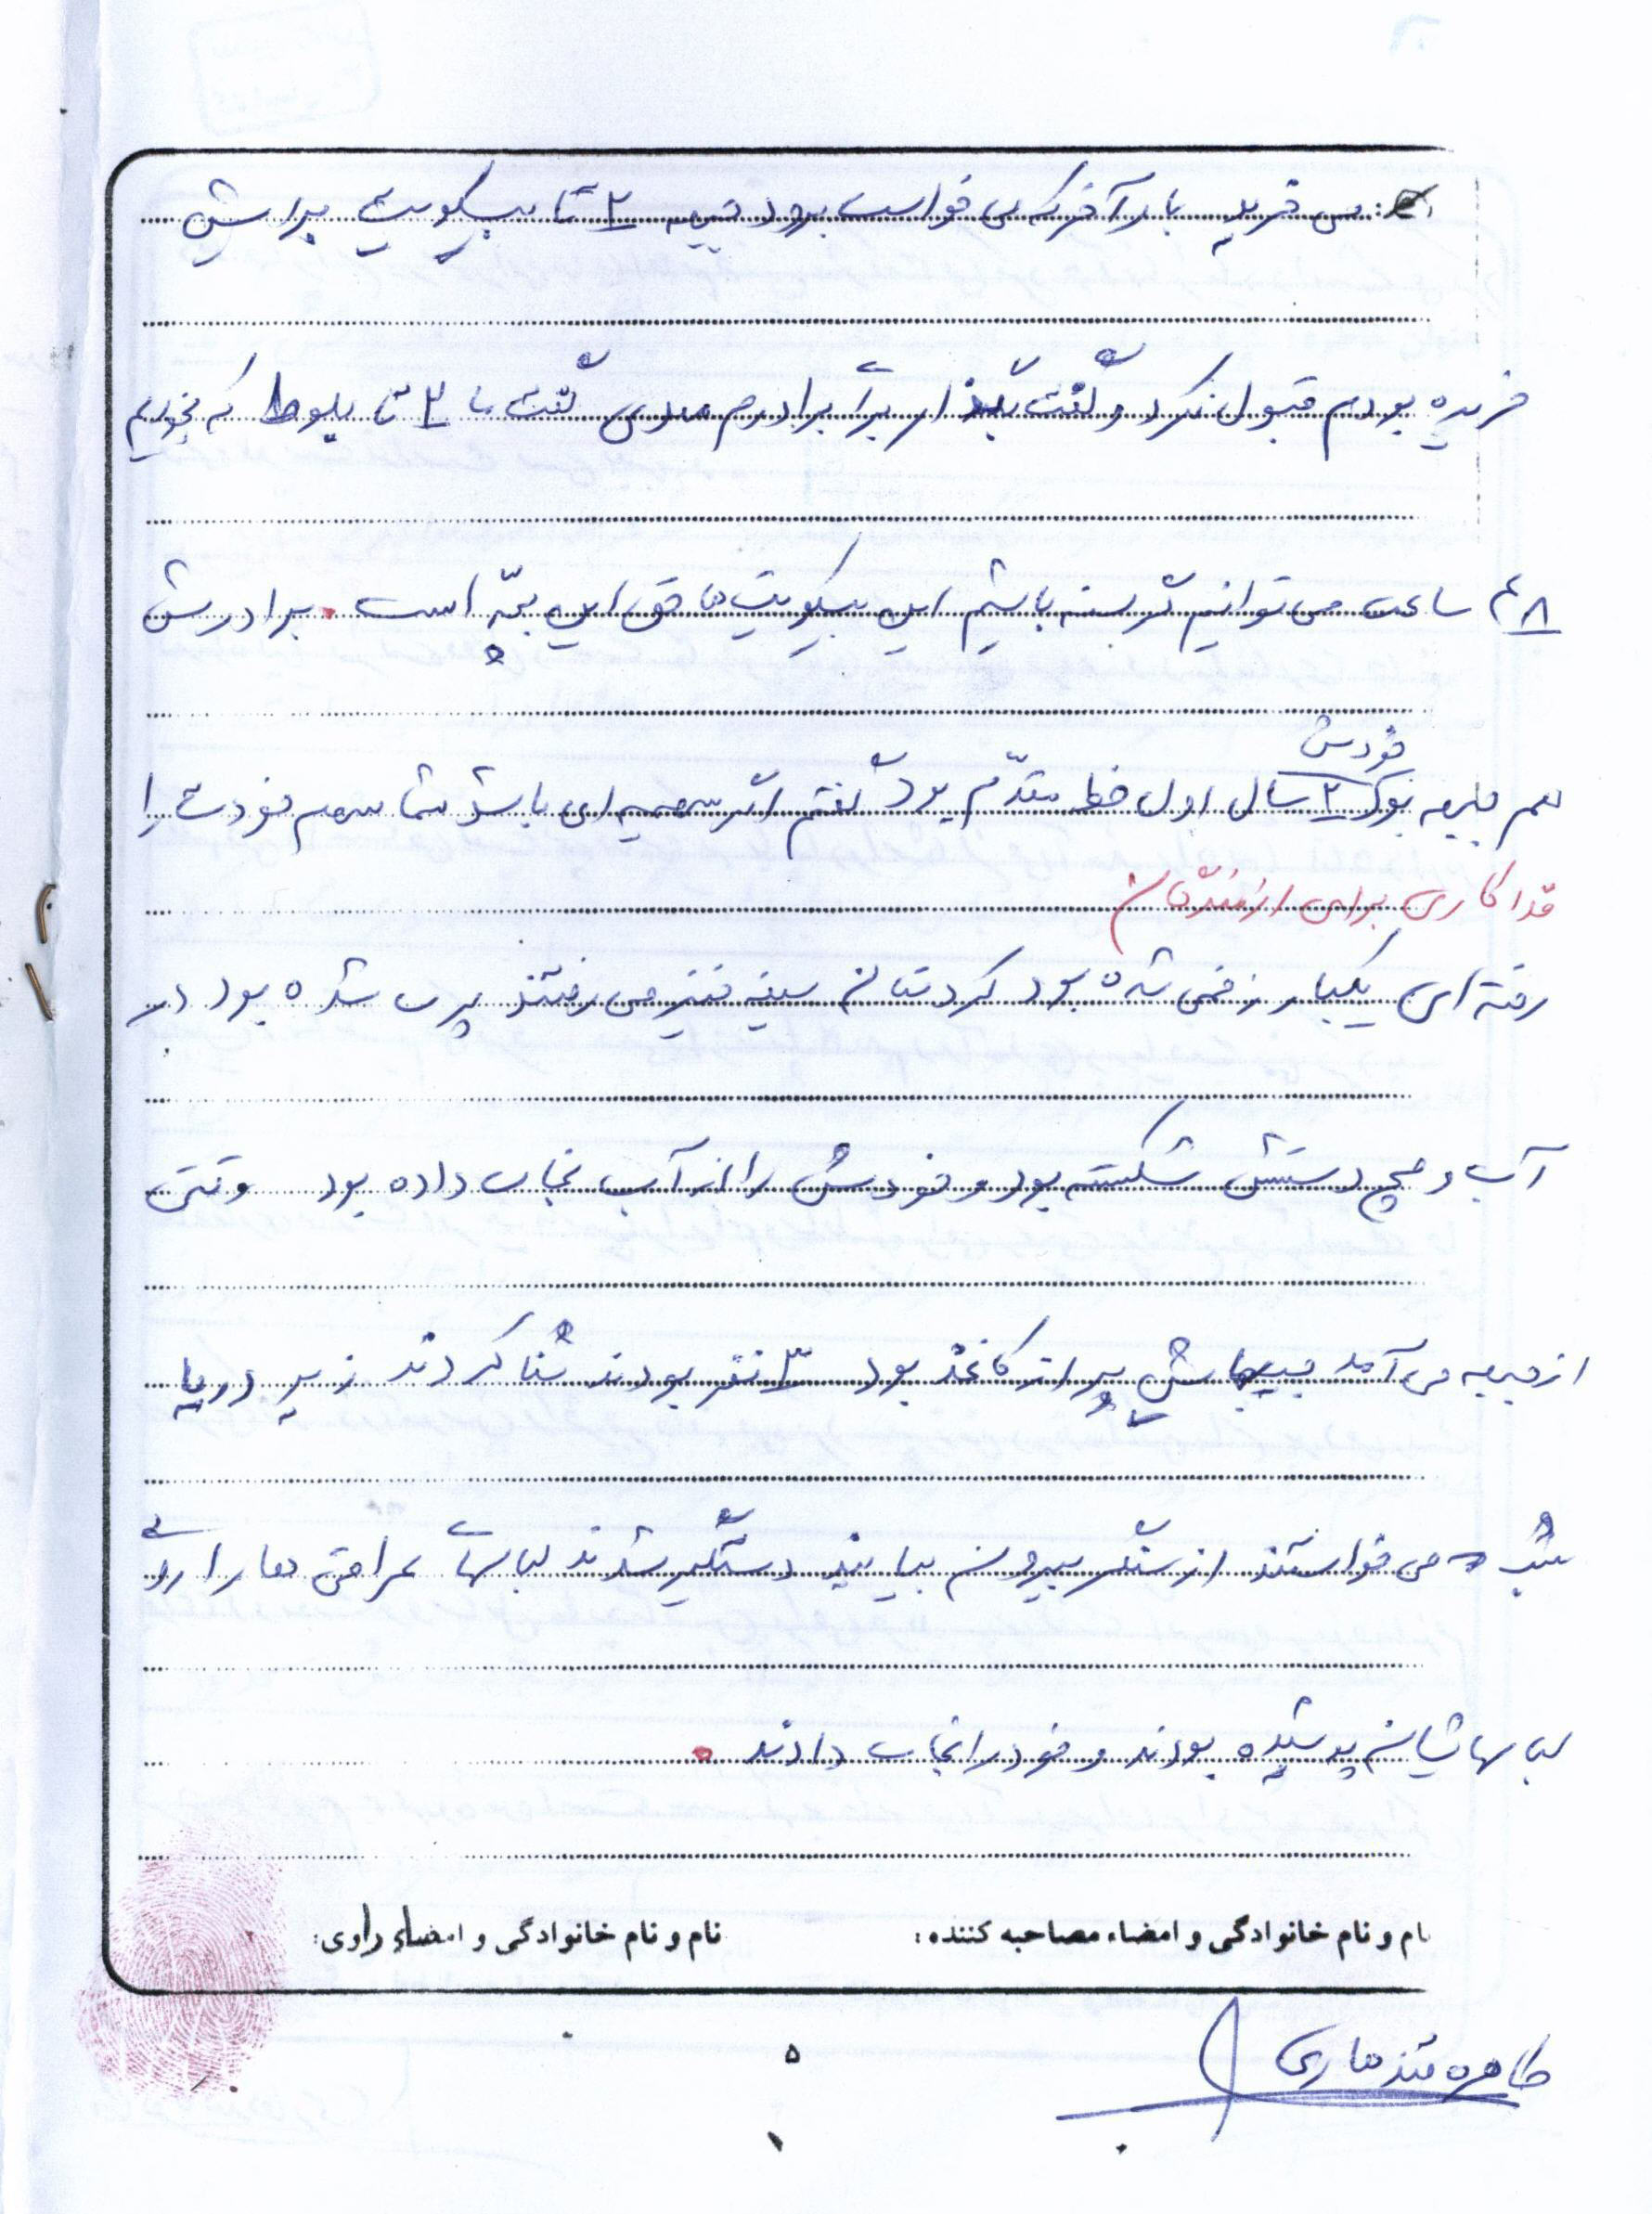 می خرید بار آخر که می خواست برود جبهه ۲ تا بیسکویت برایش
خریده بودم قبول نکرد و گفت بگذار برای برادرم مهدی گفت ما ۲ تا بلوط که بخوریم
۴۸ ساعت می توانیم گرسنه باشیم این بیسکویت ها حق این بچه است. برادرش
خودش
هم جبهه بود ۲ سال اول خط مقدم بود گفتم اگر سهمیه ای باشد شما سهم خودت را
فداکاری برای رزمندگان
رفته ای یکبار زخمی شده بود کردستان سینه خیز می رفتند پرت شده بود در
آب و مچ دستش شکسته بود و خودش را از آب نجات داده بود وقتی
از جبهه می آمد جیبهایش پر از کاغذ بود ۳ نفر بودند شنا کردند زیر دریا
شب می خواستند از سنگر بیرون بیایند دستگیر شدند لباسهای عراقی ها را روی
لباسهاشان پوشیده بودند و خود را نجات دادند.
نام و نام خانوادگی و امضاء مصاحبه کننده:
نام و نام خانوادگی و امضاء راوی:
طاهره قندهاری
۵